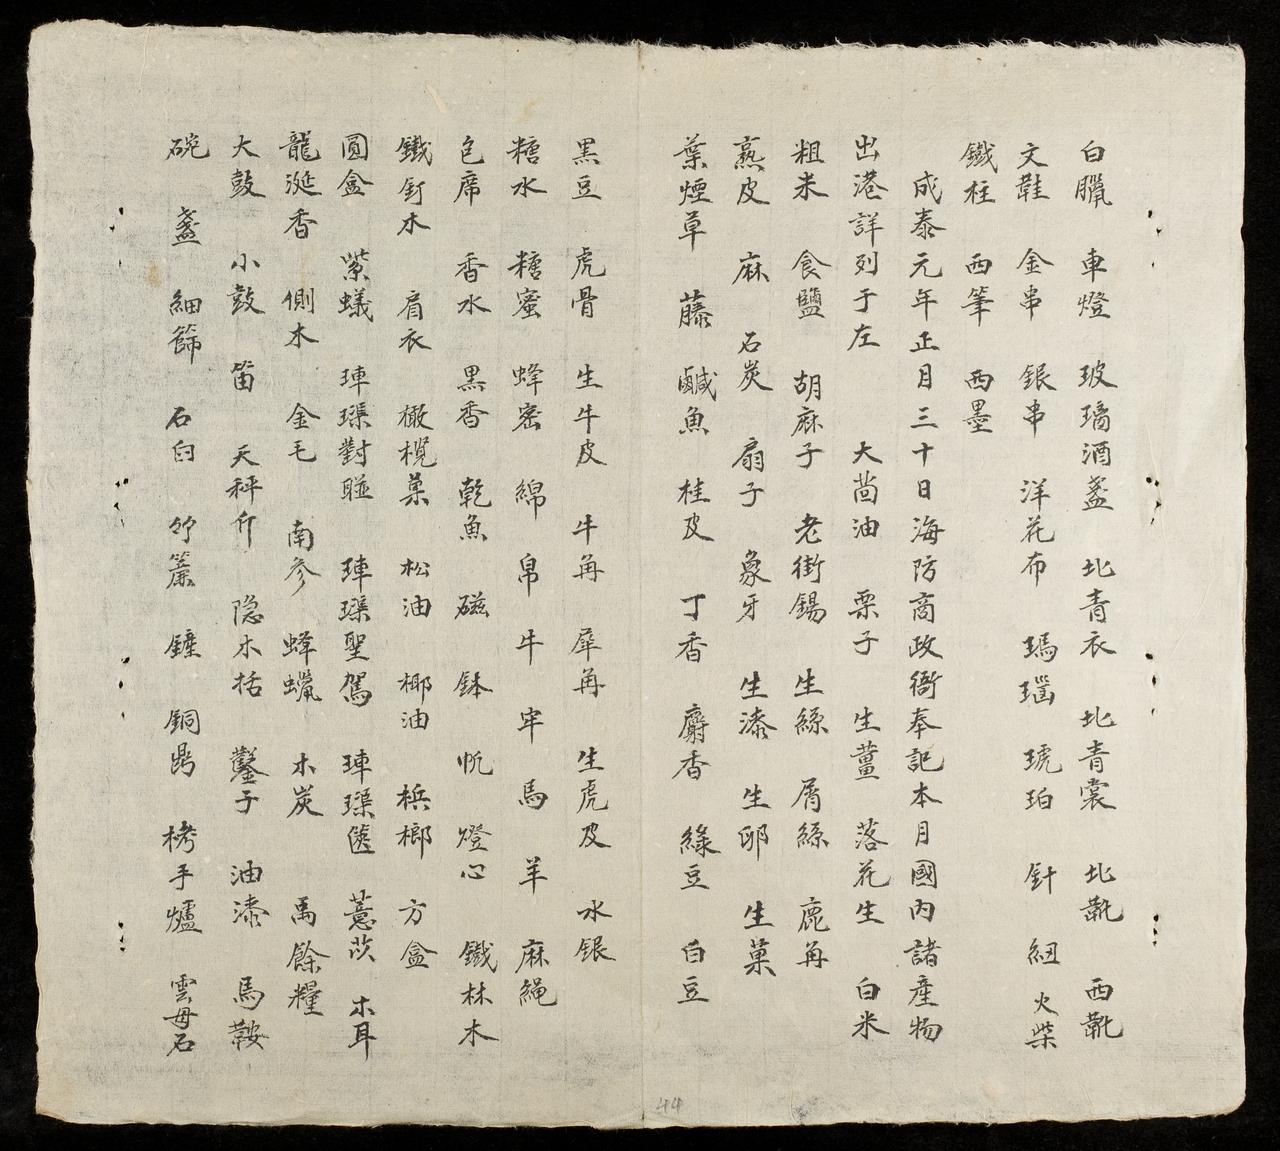 白臘 車燈 玻璃酒盞 北青衣 北青裳 北靴 西靴
文鞋 金串 銀串 洋花布 瑪瑙 琥珀 針 紐 火柴
鐵柱 西筆 西墨
成泰元年正月三十日海防商政衙奉記本月國內諸産物
出港詳列于左 大茴油 栗子 生薑 落花生 白米
粗米 食鹽 胡麻子 老街錫 生絲 屑絲 鹿角
熟皮 麻 石炭 扇子 象牙 生漆 生卵 生菓
葉煙草 藤 鹹魚 桂皮 丁香 麝香 綠豆 白豆
黑豆 虎骨 生牛皮 牛角 犀角 生虎皮 水銀
糖水 糖蜜 蜂密 綿 帛 牛 牢 馬 羊 麻繩
包席 香水 黑香 乾魚 磁 鉢 帆 燈心 鐵林木
鐵釘木 肩衣 橄欖菓 松油 椰油 梹榔 方盒
圓盒 紫蟻 硨磲對聯 硨磲聖駕 硨磲匧 薏苡 木耳
龍涎香 側木 金毛 南參 蜂蠟 木炭 禹餘糧
大鼓 小鼓 笛 天秤斤 隐木括 鑿子 油漆 馬鞍
碗 盞 細篩 石臼 竹簾 鏟 銅鼎 栲手爐 雲母石
44